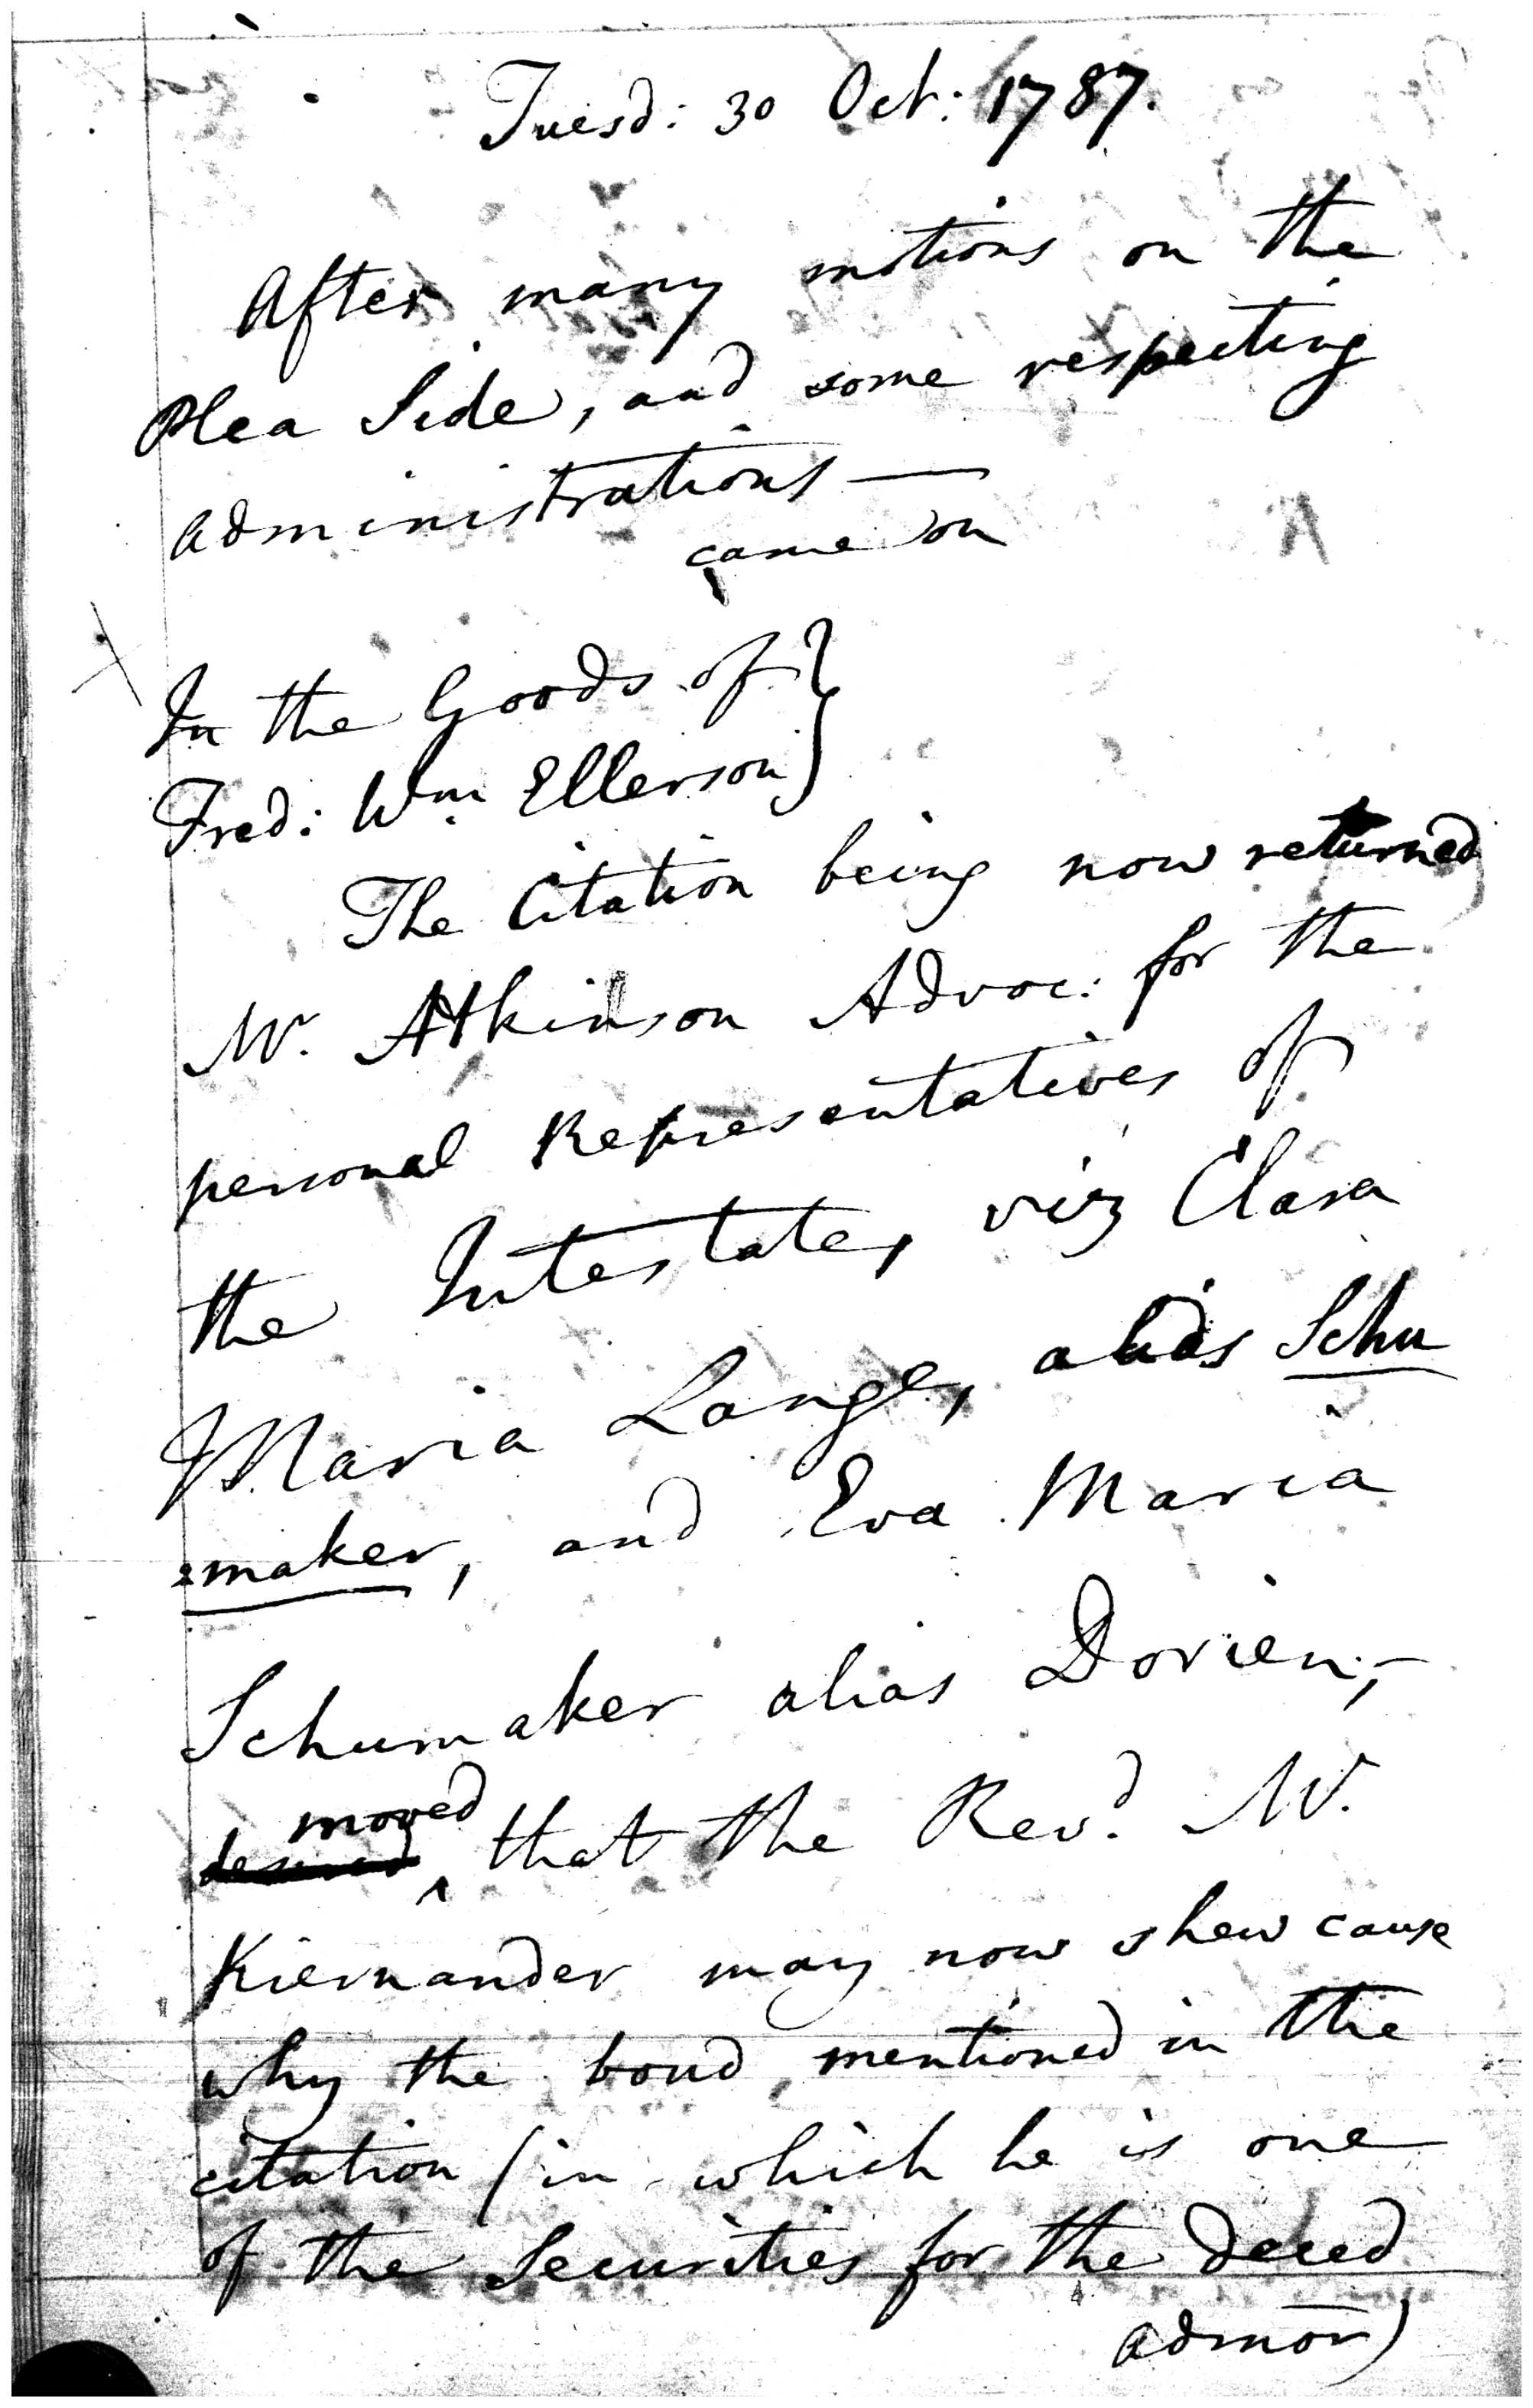 Tuesd: 30 Oct: 1787.
After many motions on the
Plea Side, and some respecting
administrations —
came on
In the Goods of }
Fred: Wm Ellerson }
The Citation being now returned
Mr. Atkinson Advoc: for the
personal Representatives of
the Intestate, viz Clara
Maria Lange, alias Schu
=maker, and Eva Maria
Schumaker alias Dorien,-
moved
desired ^ that the Revd. Mr.
Kiernander may now shew cause
why the bond, mentioned in the
citation (in which he is one
of the Securities for the deced
admor)